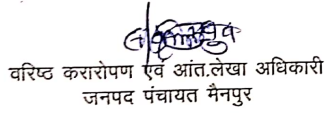 वरिष्ठ करारोपण एवं आंत.लेखा अधिकारी
जनपद पंचायत मैनपुर